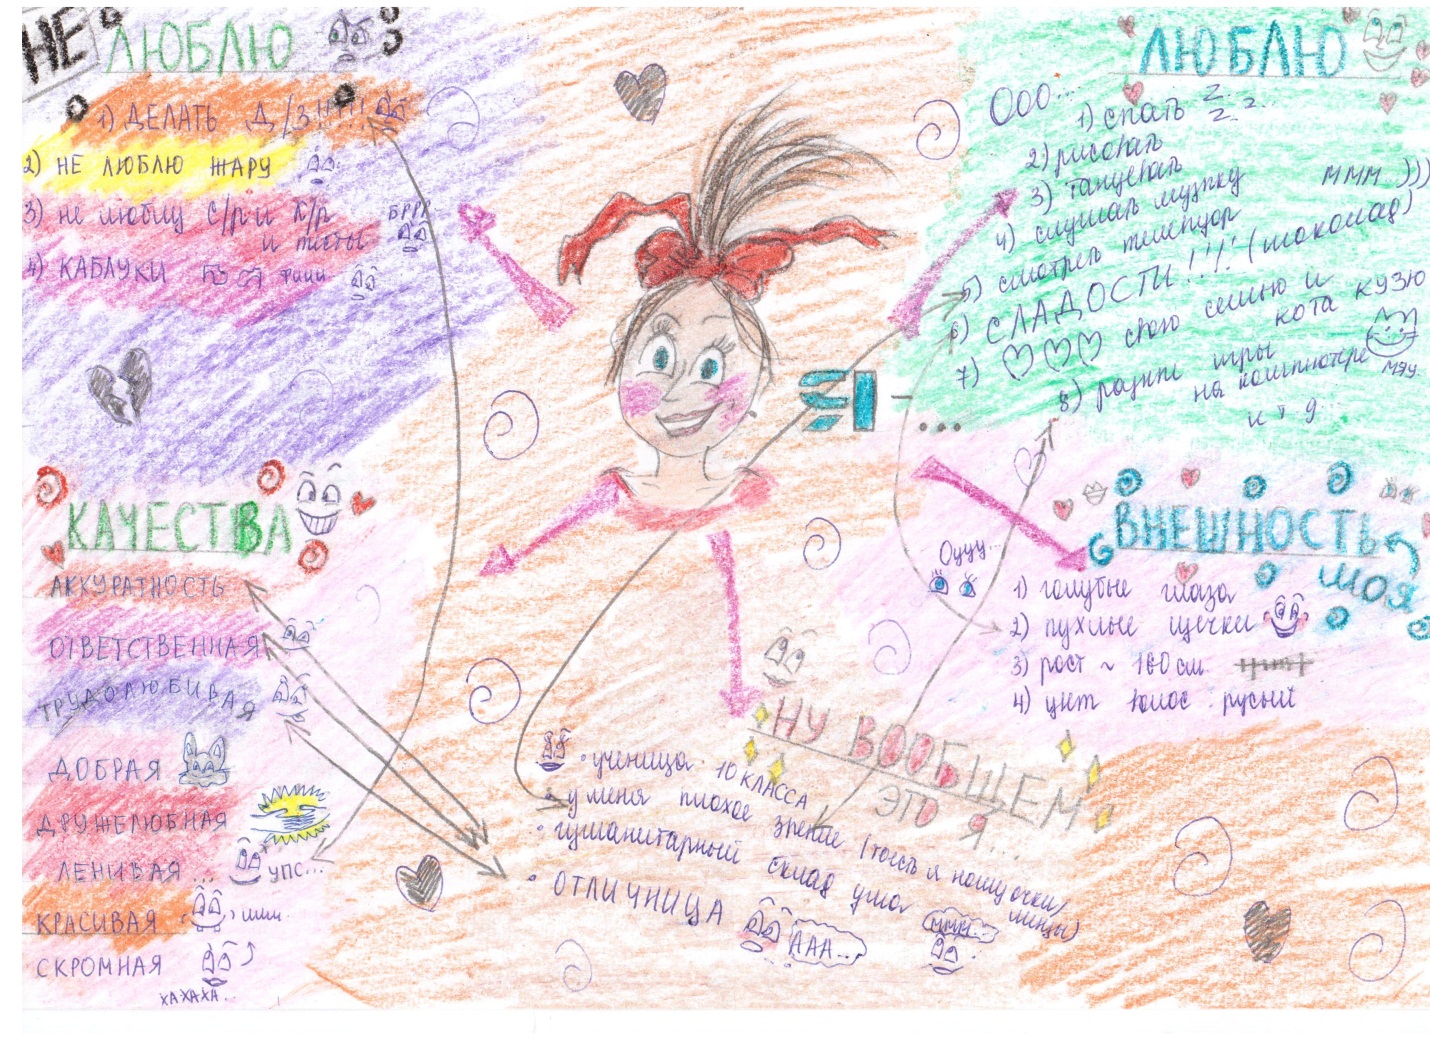 НЕ ЛЮБЛЮ
1) ДЕЛАТЬ Д/З!!!!
2) НЕ ЛЮБЛЮ ЖАРУ
3) не люблю с/р и к/р
и тесты БРР..
4) КАБЛУКИ фиии
КАЧЕСТВА
АККУРАТНОСТЬ
ОТВЕТСТВЕННАЯ
ТРУДОЛЮБИВАЯ
ДОБРАЯ
ДРУЖЕЛЮБНАЯ
ЛЕНИВАЯ... УПС...
КРАСИВАЯ
СКРОМНАЯ
ХАХАХА..
Я - ...
ЛЮБЛЮ
Ооо...
1) спать z z z
2) рисовать
3) танцевать
4) слушать музыку МММ..)))
5) смотреть телевизор
6) СЛАДОСТИ!!! (шоколад)
7) свою семью и
кота КУЗЮ
МЯУ
8) играть игры
на компьютере
и т д...
ВНЕШНОСТЬ
МОЯ
Оууу...
1) голубые глаза
2) пухлые щечки
3) рост ~ 160 см
4) цвет волос - русый
НУ ВООБЩЕМ
ЭТО Я...
• ученица 10 КЛАССА
• у меня плохое зрение (тоесть я ношу очки/
линзы)
• гуманитарный склад ума МММ...
• ОТЛИЧНИЦА ААА...